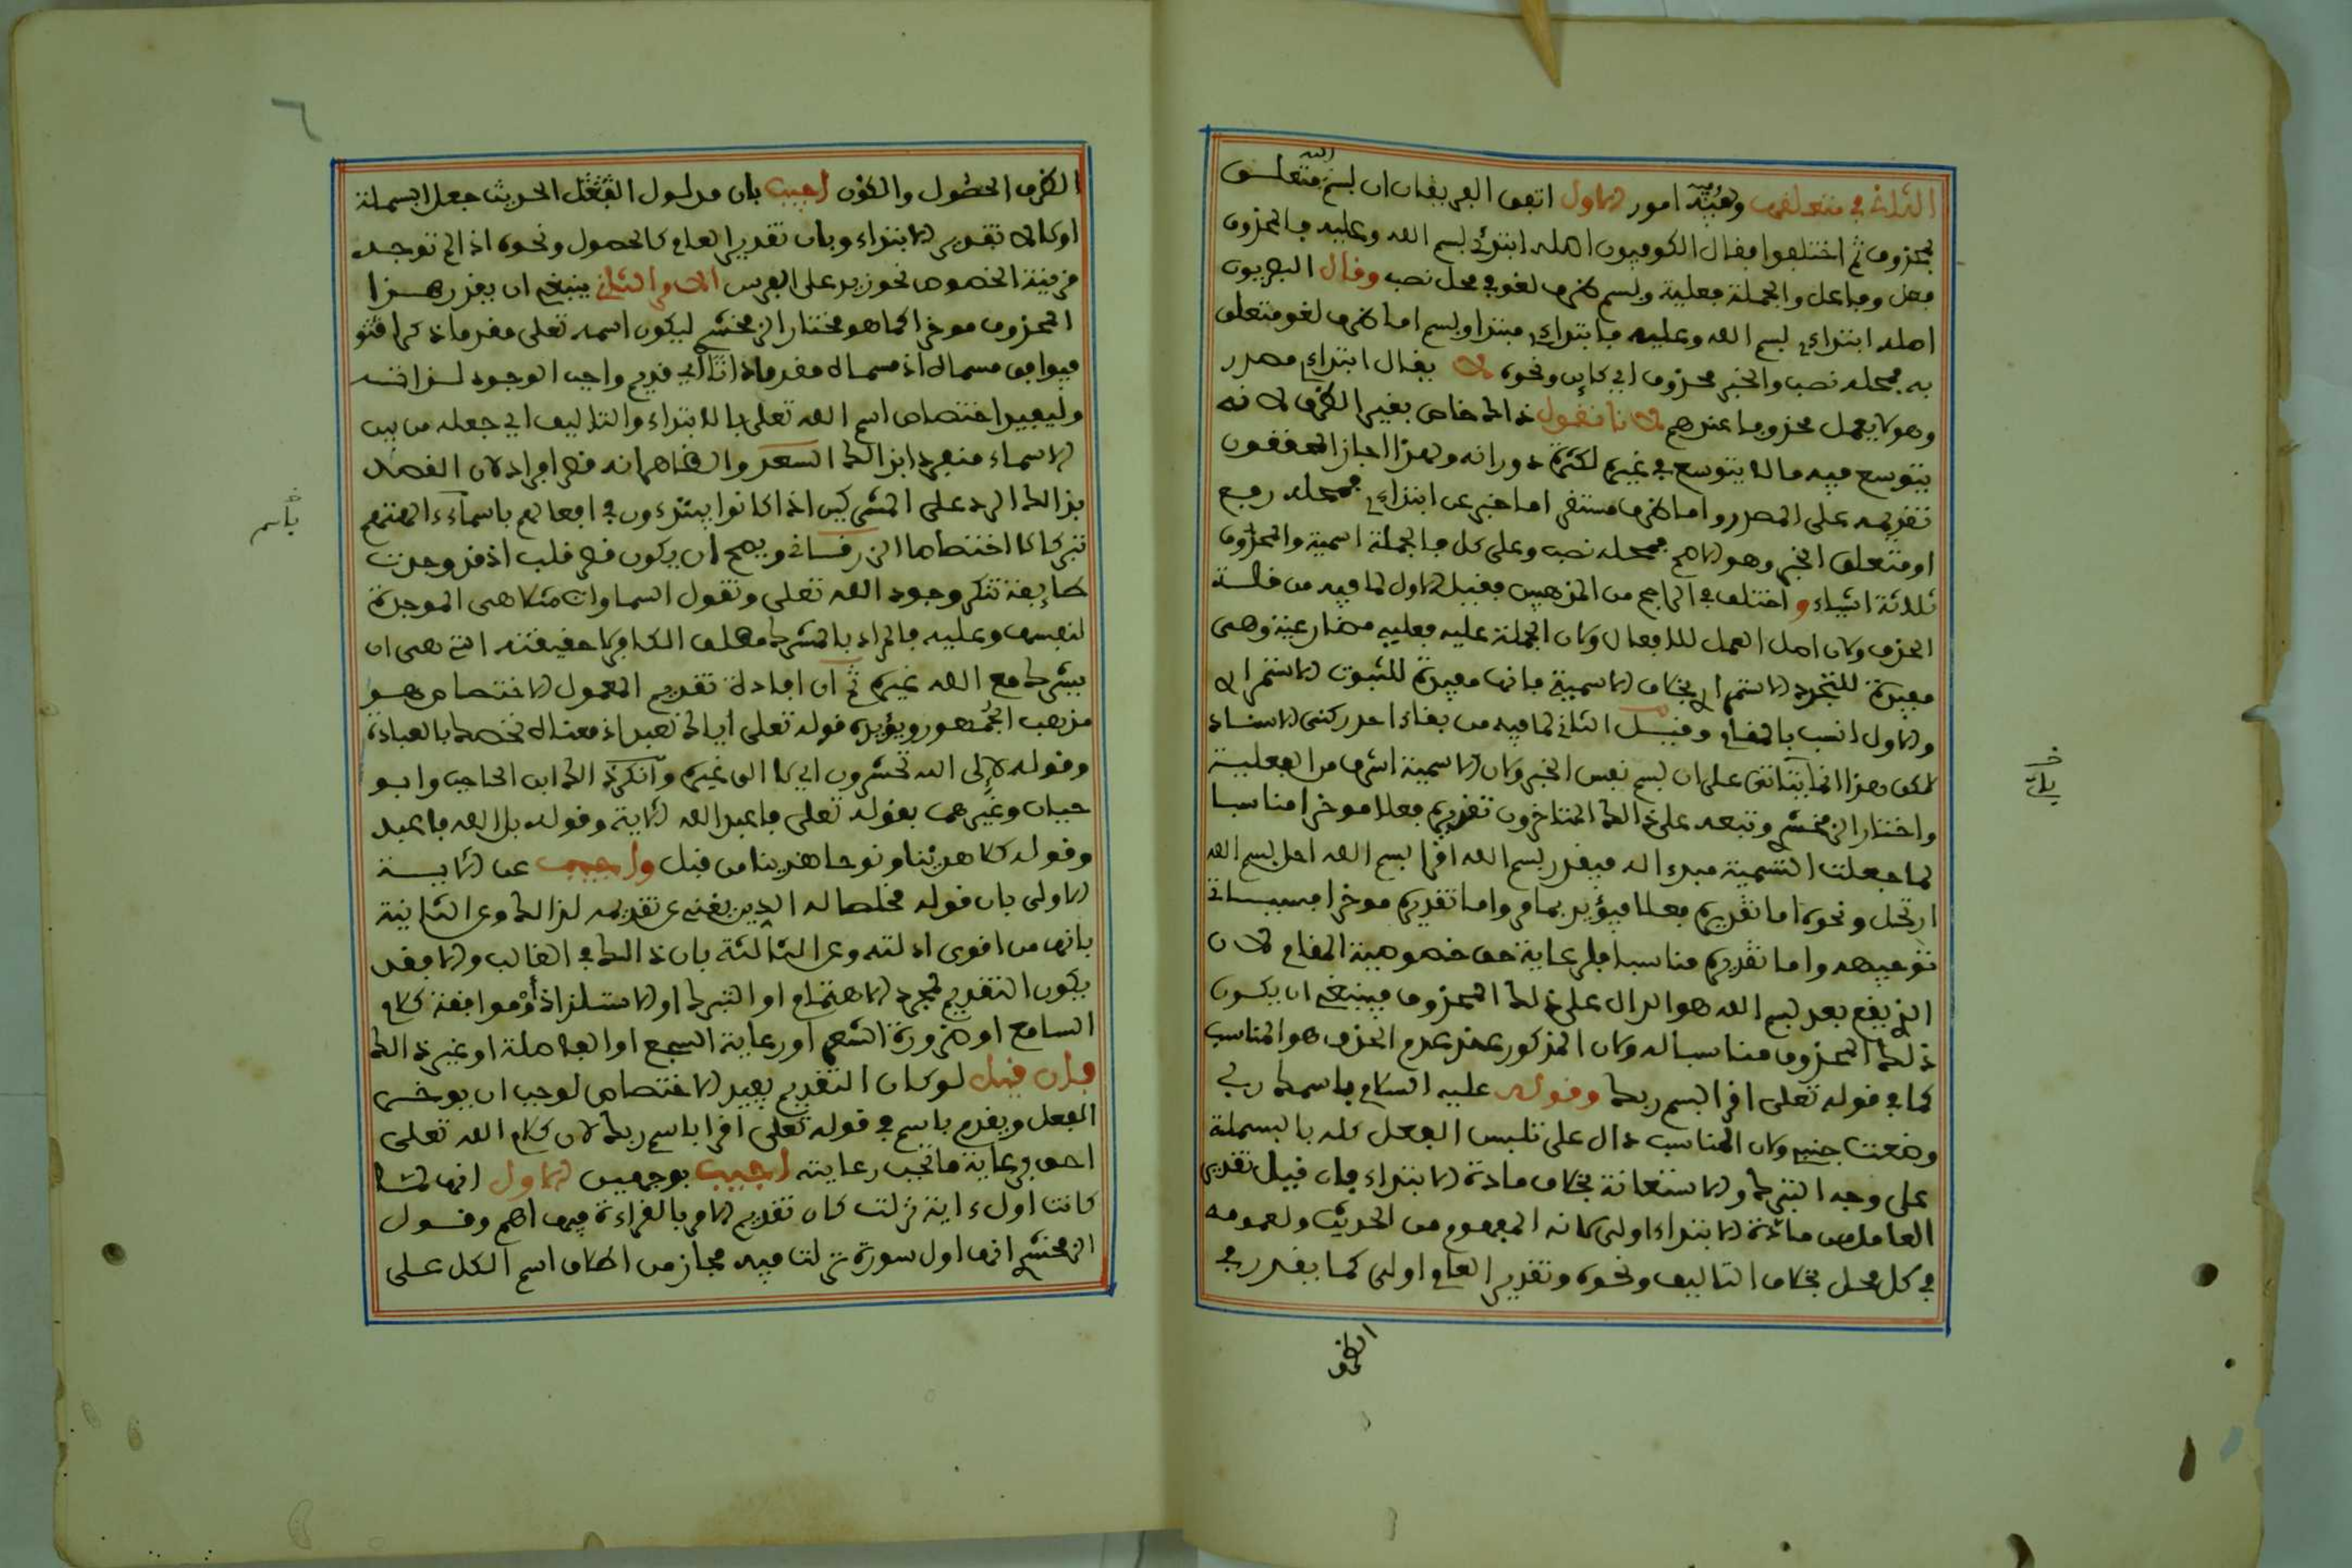 الثالث في متعلقها وفيه امور الاول اتفق الفريقان ان بسم الله متعلق
بمحذوف ثم اختلفوا فقال الكوفيون اصله ابتدئ بسم الله وعليه فالمحذوف
فعل وفاعل والجملة فعلية وبسم ظرف لغو في محل نصب وقال البصريون
اصله ابتداءي بسم الله وعليه فابتداءي مبتدا وبسم اما ظرف لغو متعلق
به فمحله نصب والخبر محذوف اي كاين ونحوه لا يقال ابتداءي مصدر
وهو لا يعمل محذوفا عندهم لانا نقول ذالك خاص بغير الظرف لانه
يتوسع فيه ما لا يتوسع في غيره لكثرة دورانه ولهذا اجاز المحققون
تقديمه على المصدر واما ظرف مستقر اما خبر عن ابتداءي فمحله رفع
او متعلق الخبر وهو الاصح فمحله نصب وعلى كل فالجملة اسمية والمحذوف
ثلاثة اشياء و اختلف في الراجح من المذهبين فقيل الاول لما فيه من قلة
الحذف ولان اصل العمل للافعال ولان الجملة عليه فعلية مضارعية وهي
مفيدة للتجدد الاستمراري بخلاف الاسمية فانها مفيدة للثبوت الاستمراري
والاول انسب بالمقام وقيل الثاني لما فيه من بقاء احد ركني الاسناد
لكن هذا انما يتاتى على ان بسم نفس الخبر ولان الاسمية اشرف من الفعلية
واختار الزمخشري وتبعه على ذالك المتاخرون تقديره فعلا موخرا مناسبا
لما جعلت التسمية مبدءا له فيقدر بسم الله اقرا بسم الله احل بسم الله
ارتحل ونحوه اما تقديره فعلا فيؤيد بما مر واما تقديره موخرا فسياتي
توجيهه واما تقديره مناسبا فلرعاية حق خصوصية المقام لان
الذي يقع بعد بسم الله هو الدال على ذلك المحذوف فينبغي ان يكون
ذلك المحذوف مناسبا له ولان المذكور عند عدم الحذف هو المناسب
كما في قوله تعلى اقرا بسم ربك وقوله عليه السلام باسمك ربي
وضعت جنبي ولان المناسب دال على تلبس الفعل كله بالبسملة
على وجه التبرك والاستعانة بخلاف مادة الابتداء فان قيل تقدير
العامل من مادة الابتداء اولى لانه المفهوم من الحديث ولعمومه
في كل محل بخلاف التاليف ونحوه وتقدير العام اولى كما يقدر في
الظرف
الظرف الحصول والكون اجيب بان مدلول الحديث جعل البسملة
اوكالا تقدير الابتداء وبان تقدير العام كالحصول ونحوه اذا لم توجد
قرينة الخصوص نحو زيد على الفرس الامر الثاني ينبغي ان يقدر هذا
المحذوف موخرا كما هو مختار الزمخشري ليكون اسمه تعلى مقدما ذكرا
فيوافق مسماه اذ مسماه مقدم اي قديم واجب الوجود لذاته
وليفيد اختصاص اسم الله تعلى بالابتداء والتاليف اي جعله من بين
الاسماء منفردا بذالك السعد والظاهر انه قصر افراد لان القصد
بذالك الرد على المشركين اذ كانوا يبتدءون في افعالهم باسماء الهتهم
تبركا لا اختصاصا الزرقاني ويصح ان يكون قصر قلب اذ قد وجدت
طايفة تنكر وجود الله تعلى وتقول السماوات مثلا هي الموجدة
لنفسها وعليه فالمراد بالمشرك مطلق الكافر لا حقيقته التي هي ان
يشرك مع الله غيره ثم ان افادة تقديم المعمول الاختصاص هو
مذهب الجمهور ويؤيده قوله تعلى اياك نعبد اذ معناه نخصك بالعبادة
وقوله لإلى الله تحشرون اي لا الى غيره وانكر ذالك ابن الحاجب وابو
حيان وغيرهما بقوله تعلى فاعبد الله الاية وقوله بل الله فاعبد
وقوله كلا هدينا ونوحا هدينا من قبل واجيب عن الاية
الاولى بان قوله مخلصا له الدين يغني عن تقديمه لذالك وعن الثانية
بانها من اقوى ادلته وعن الثالثة بان ذالك في الغالب والا فقد
يكون التقديم لمجرد الاهتمام او التبرك او الاستلذاذ او موافقة كلام
السامع او ضرورة الشعر او رعاية السجع او الفاصلة او غير ذالك
فان قيل لو كان التقديم يفيد الاختصاص لوجب ان يوخر
الفعل ويقدم باسم في قوله تعلى اقرا باسم ربك لان كلام الله تعلى
احق برعاية ما تجب رعايته اجيب بوجهين الاول انها لما
كانت اول ءاية نزلت كان تقديم الامر بالقراءة فيها اهم وقول
الزمخشري انها اول سورة نزلت فيه مجاز من اطلاق اسم الكل على
باسم